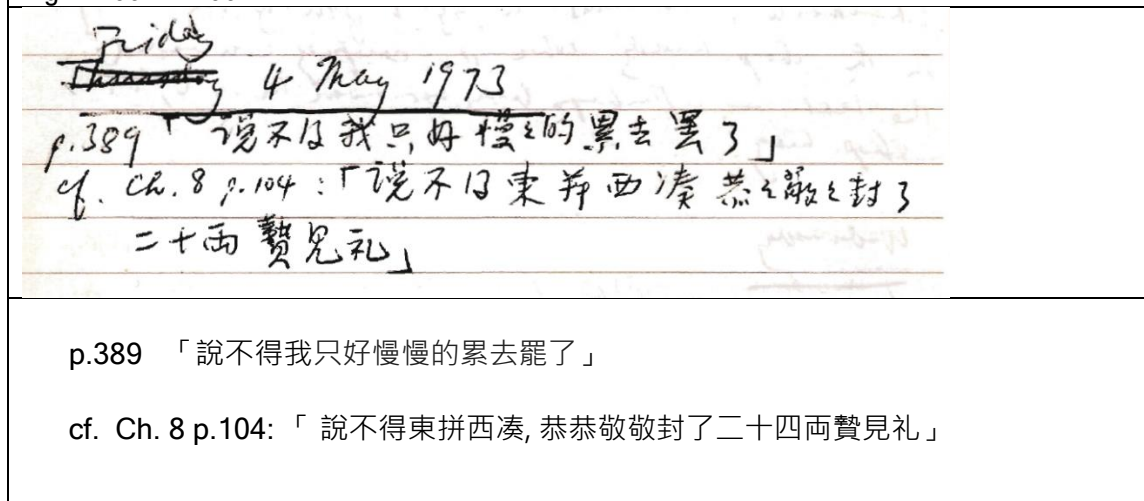 Friday
Thursday 4 May 1973
p.389「说不得我只好慢々的累去罢了」
cf. Ch. 8 p.104:「说不得東拼西凑 恭々敬々封了
二十両贄見礼」
p.389 「說不得我只好慢慢的累去罷了」
cf. Ch. 8 p.104: 「 說不得東拼西凑, 恭恭敬敬封了二十四両贄見礼」